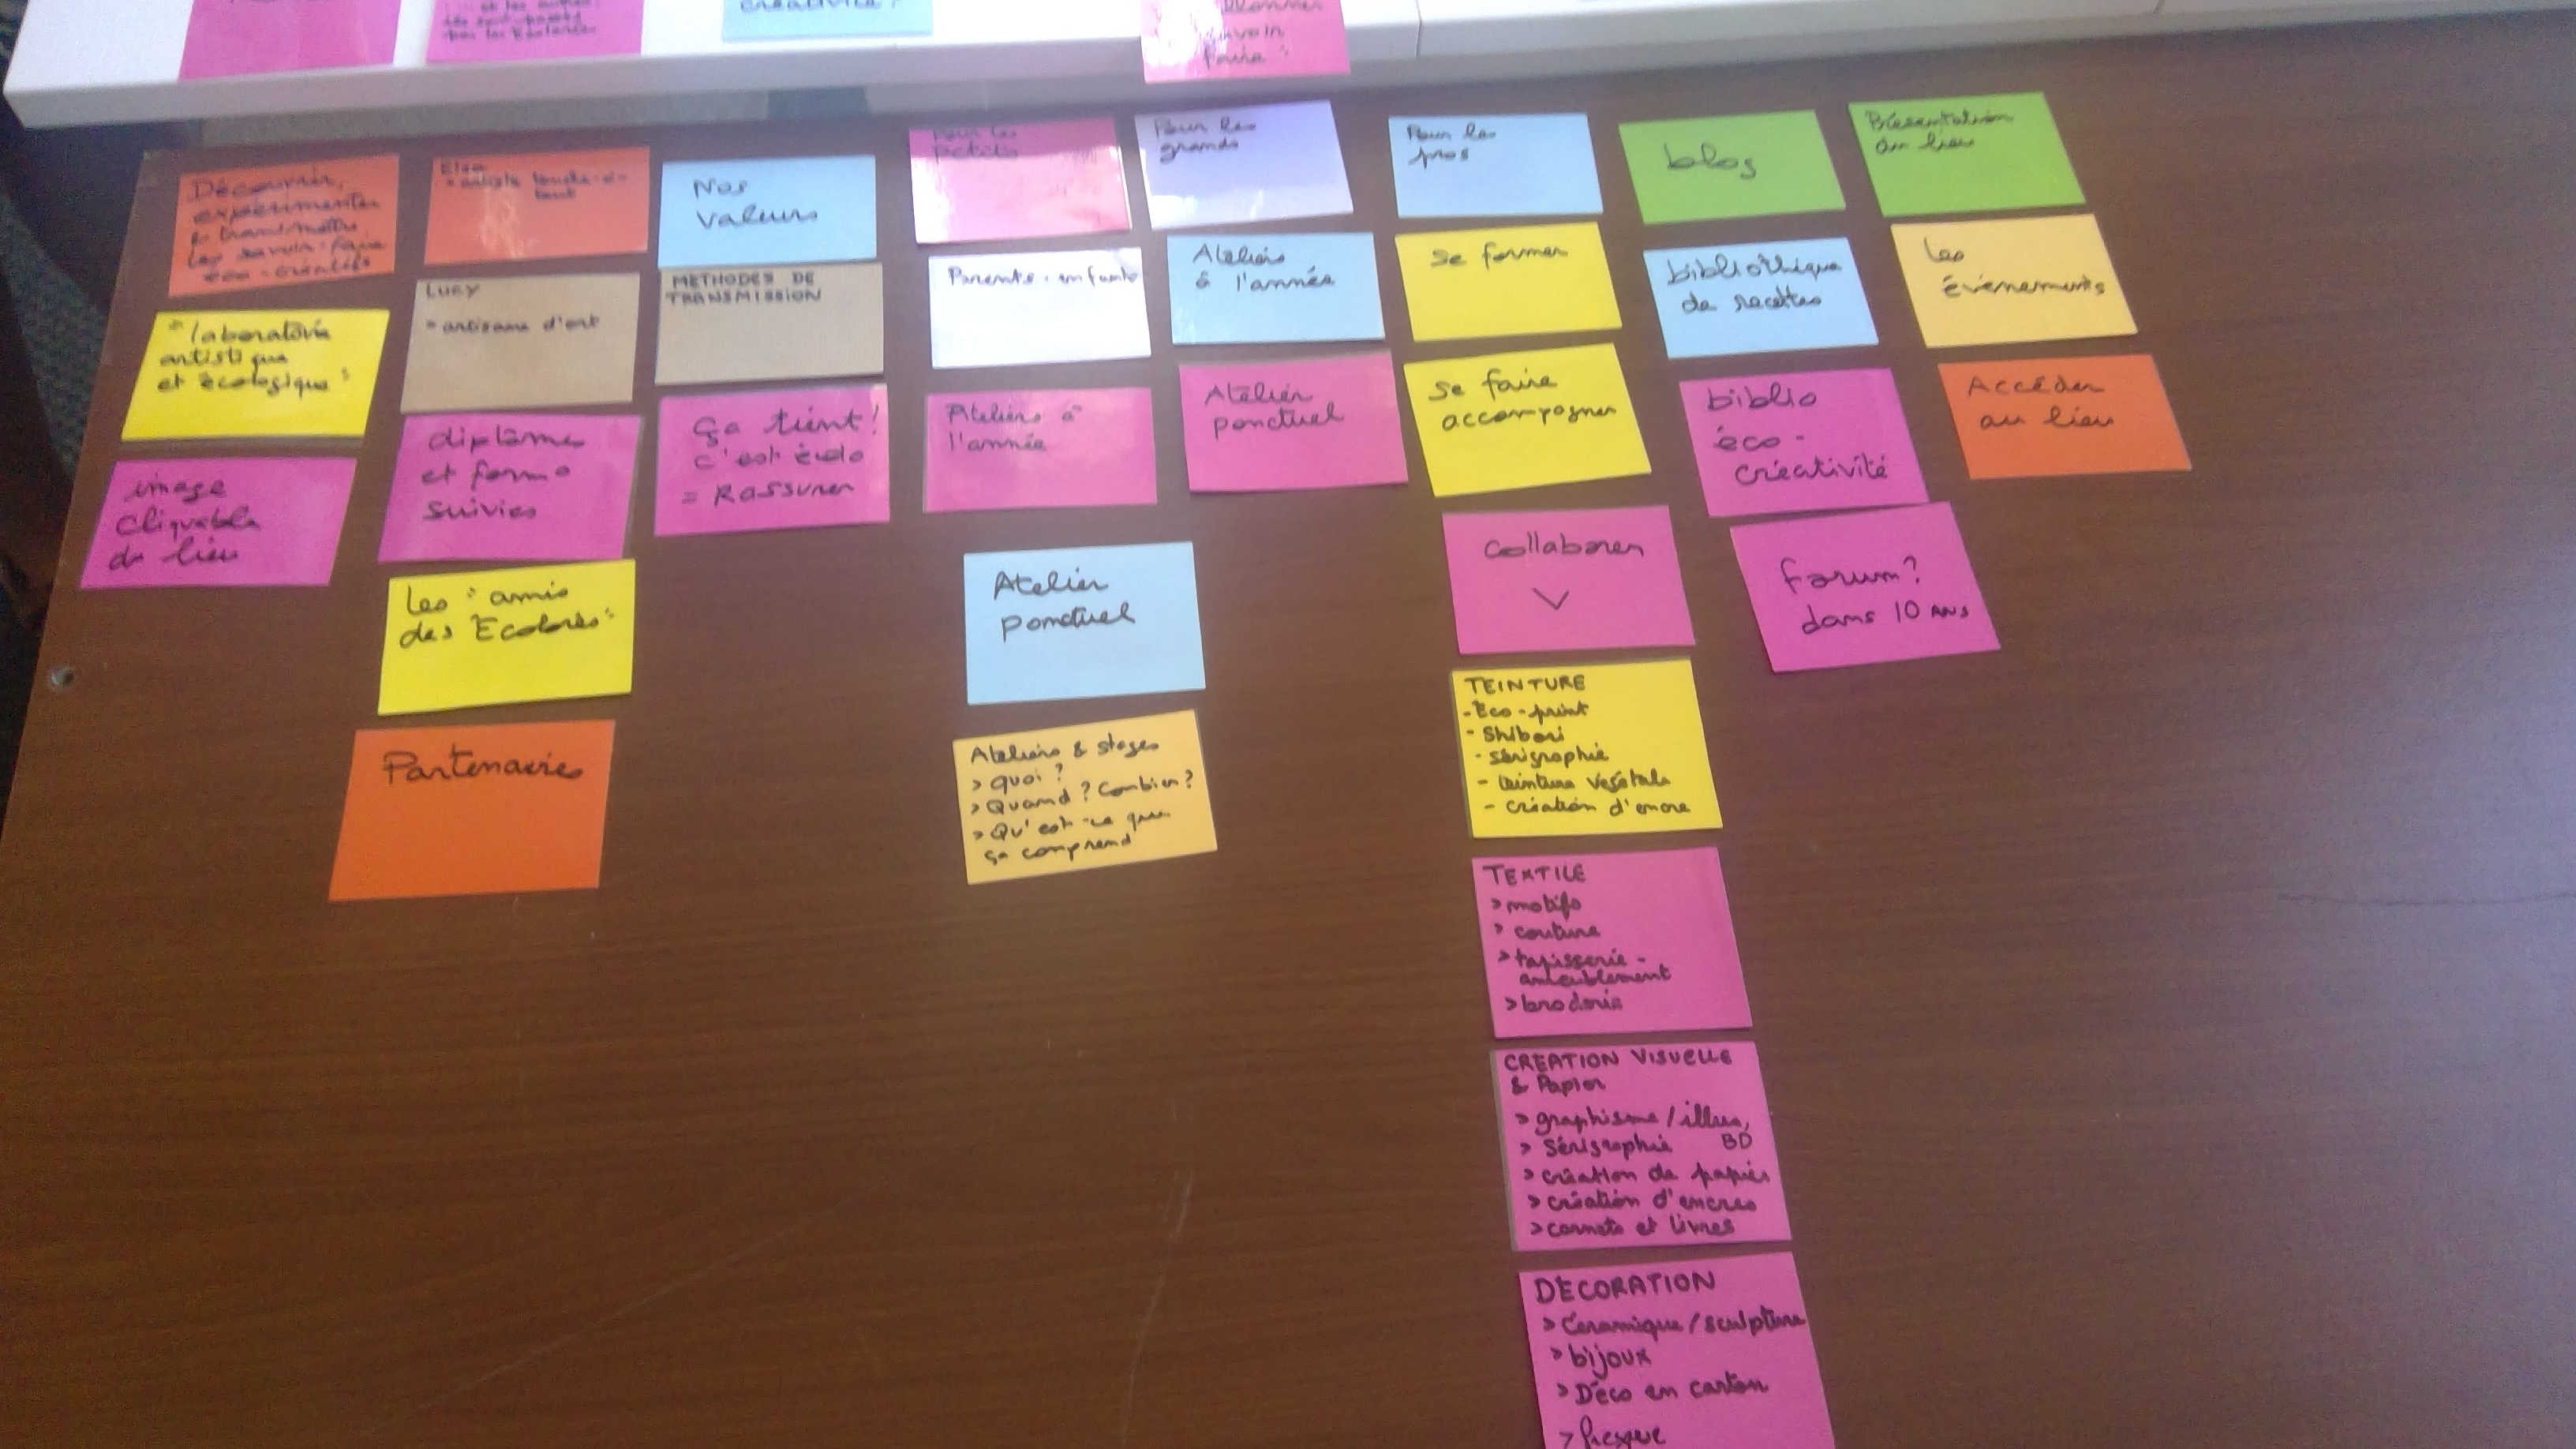 créativité ?
donner
savoir
faire"
Découvrir,
expérimenter
& transmettre
les savoir-faire
éco-créatifs
"laboratoire
artistique
et écologique"
image
cliquable
du lieu
Elsa
= artiste touche-à-
tout
LUCY
= artisane d'art
diplômes
et form°
suivies
Les "amis
des Ecolorés"
Partenaires
Nos
valeurs
METHODES DE
TRANSMISSION
Ça tient!
c'est écolo
= RASSURER
Pour les
petits
Parents-enfants
Ateliers à
l'année
Atelier
ponctuel
Ateliers & stages
> quoi ?
> Quand ? Combien ?
> Qu'est-ce que
ça comprend
Pour les
grands
Ateliers
à l'année
Atelier
ponctuel
Pour les
pros
se former
se faire
accompagner
Collaborer
TEINTURE
- Eco-print
- Shibori
- sérigraphie
- teinture végétale
- création d'encre
TEXTILE
> motifs
> couture
> tapisserie -
ameublement
> broderie
CREATION VISUELLE
& Papier
> graphisme / illus,
BD
> Sérigraphie
> création de papiers
> création d'encres
> carnets et livres
DECORATION
> Céramique / sculpture
> bijoux
> Déco en carton
> fresque
blog
bibliothèque
de recettes
biblio
éco-
créativité
forum ?
dans 10 ANS
Présentation
du lieu
Les
événements
Accéder
au lieu